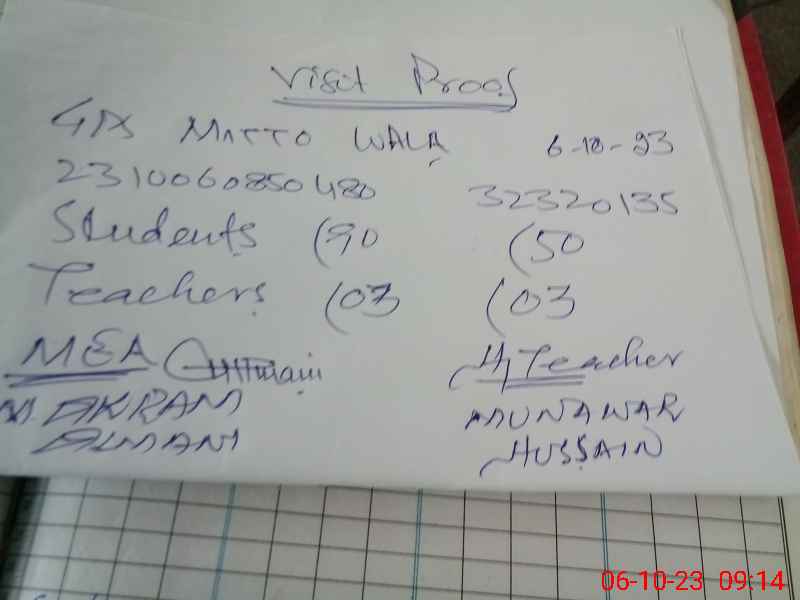 Visit Proof
GPS MATTO WALA 6-10-23
2310060850480 32320135
Students (90 (50
Teachers (03 (03
MEA H/Teacher
M. AKRAM MUNAWAR
HUSSAIN
06-10-23 09:14